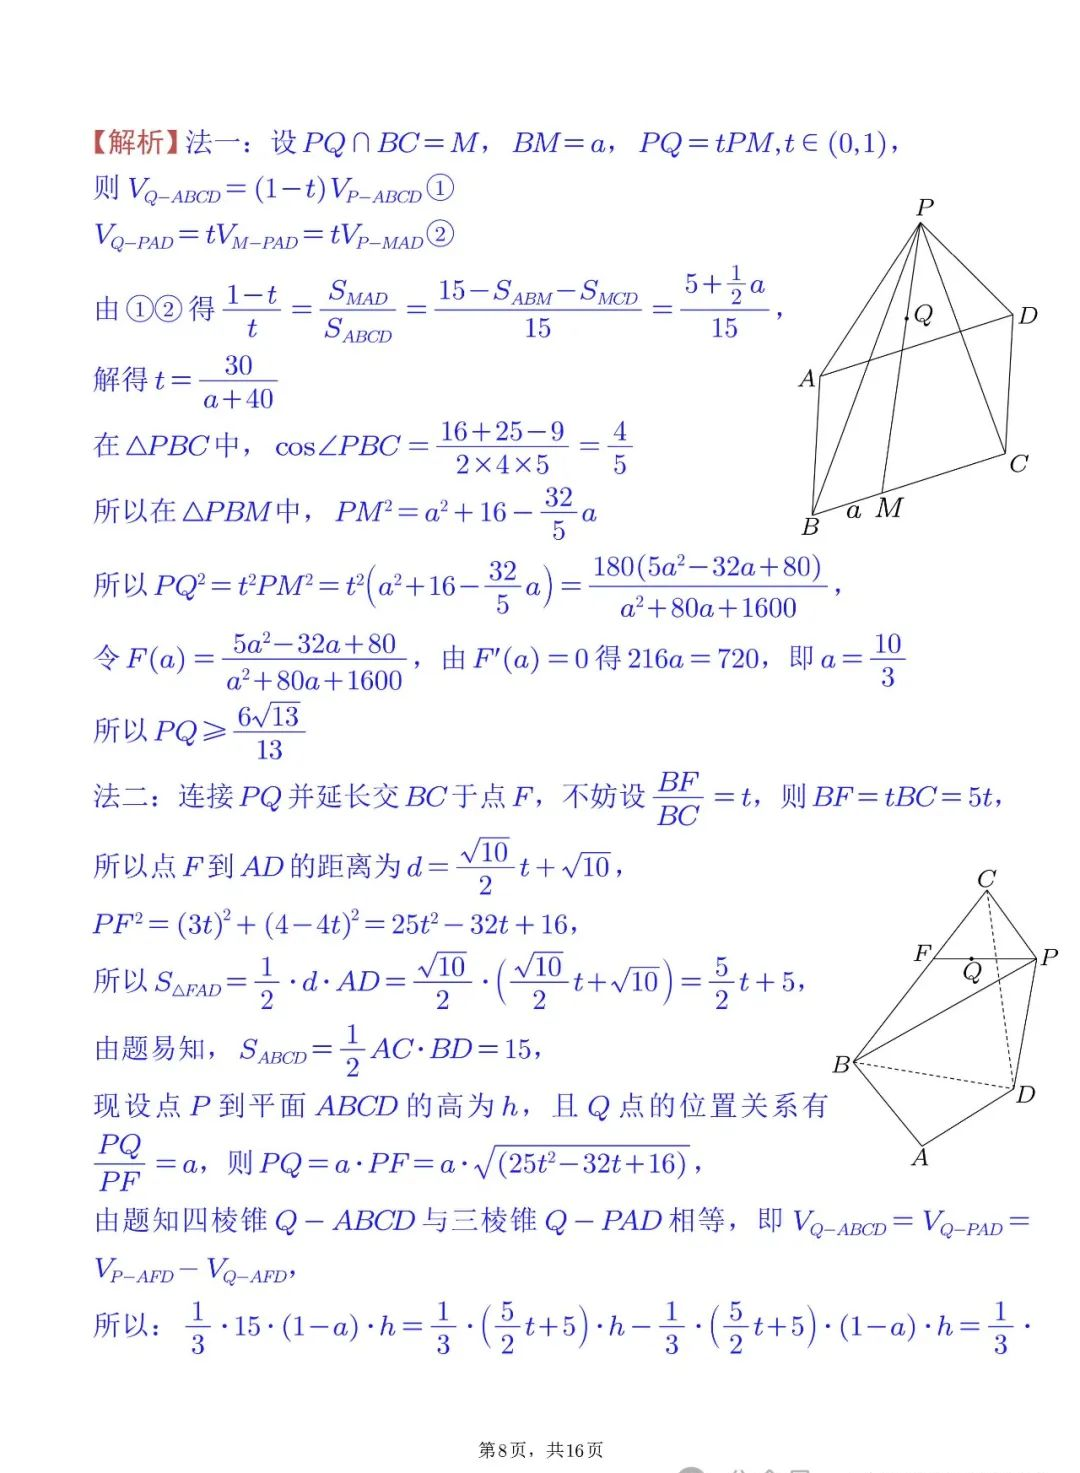 【解析】法一：设 PQ∩BC=M，BM=a，PQ=tPM,t∈(0,1)，
则 V_{Q-ABCD}=(1-t)V_{P-ABCD}①
V_{Q-PAD}=tV_{M-PAD}=tV_{P-MAD}②
由①②得 \frac{1-t}{t}=\frac{S_{MAD}}{S_{ABCD}}=\frac{15-S_{ABM}-S_{MCD}}{15}=\frac{5+\frac{1}{2}a}{15}，
解得 t=\frac{30}{a+40}
在△PBC中，cos∠PBC=\frac{16+25-9}{2×4×5}=\frac{4}{5}
所以在△PBM中，PM²=a²+16-\frac{32}{5}a
所以 PQ²=t²PM²=t²(a²+16-\frac{32}{5}a)=\frac{180(5a²-32a+80)}{a²+80a+1600}，
令 F(a)=\frac{5a²-32a+80}{a²+80a+1600}，由 F′(a)=0 得 216a=720，即 a=\frac{10}{3}
所以 PQ⩾\frac{6√13}{13}
P
Q
D
A
C
B a M
法二：连接 PQ 并延长交 BC 于点 F，不妨设 \frac{BF}{BC}=t，则 BF=tBC=5t，
所以点 F 到 AD 的距离为 d=\frac{√10}{2}t+√10，
PF²=(3t)²+(4-4t)²=25t²-32t+16，
所以 S_{△FAD}=\frac{1}{2}·d·AD=\frac{√10}{2}·(\frac{√10}{2}t+√10)=\frac{5}{2}t+5，
由题易知，S_{ABCD}=\frac{1}{2}AC·BD=15，
现设点 P 到平面 ABCD 的高为 h，且 Q 点的位置关系有
\frac{PQ}{PF}=a，则 PQ=a·PF=a·√(25t²-32t+16)，
C
F
Q
P
B
D
A
由题知四棱锥 Q-ABCD 与三棱锥 Q-PAD 相等，即 V_{Q-ABCD}=V_{Q-PAD}=
V_{P-AFD}-V_{Q-AFD}，
所以：\frac{1}{3}·15·(1-a)·h=\frac{1}{3}·(\frac{5}{2}t+5)·h-\frac{1}{3}·(\frac{5}{2}t+5)·(1-a)·h=\frac{1}{3}·
第8页，共16页